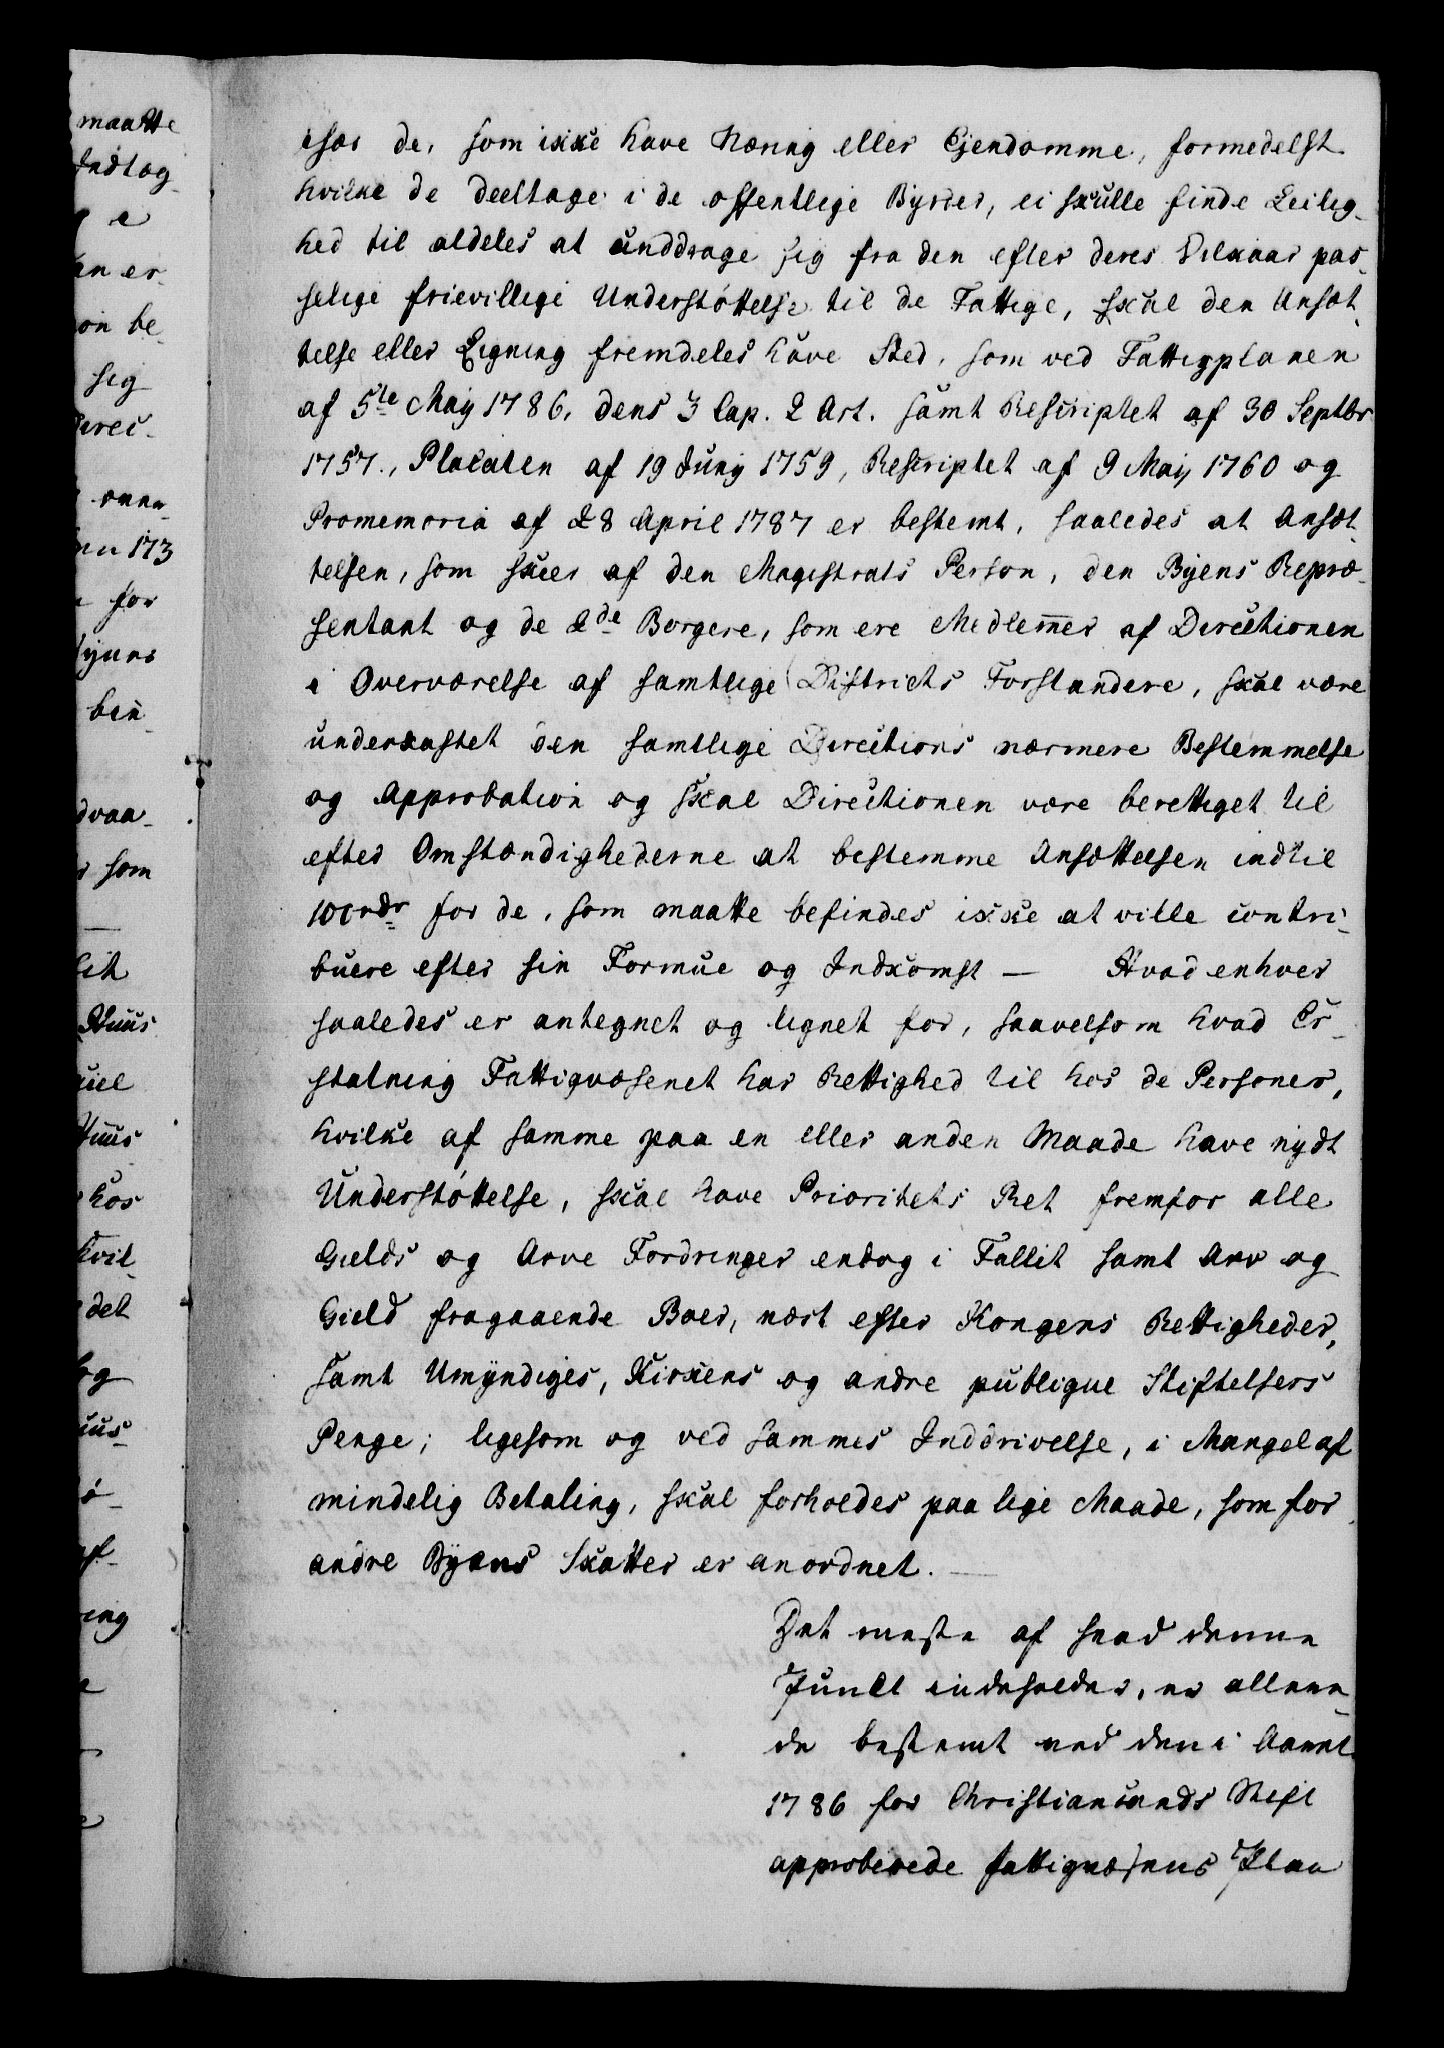 især de, som ikke have Næring eller Ejendomme, formedelst
hvilke de deeltage i de offentlige Byrder, ei skulle finde Leilig-
hed til aldeles at unddrage sig fra den efter deres Vilkaar pas-
selige frievillige Understøttelse til de Fattige, skal den Ansæt-
telse eller Ligning fremdeles have Sted, som ved Fattigplanen
af 5te May 1786, dens 3 Cap. 2 Art. samt Rescriptet af 30 Septbr
1757., Placaten af 19 Juny 1759, Rescriptet af 9 Maij 1760 og
Promemoria af 28 April 1787 er bestemt, saaledes at Ansæt-
telsen, som skeer af den Magistrats Person, den Byens Repræ-
sentant og de 2de Borgere, som ere Medlemmer af Directionen
i Overværelse af samtlige Districts Forstandere, skal være
underkastet den samtlige Directions nærmere Bestemmelse
og Approbation og skal Directionen være berettiget til
efter Omstændighederne at bestemme Ansættelsen indtil
100rdr for de, som maatte befindes ikke at ville contri-
buere efter sin Formue og Indkomst — Hvad enhver
saaledes er antegnet og lignet for, saavelsom hvad Er-
statning Fattigvæsenet har Rettighed til hos de Personer,
hvilke af samme paa en eller anden Maade have nydt
Understøttelse, skal have Prioritets Ret fremfor alle
Gields og Arve Fordringer endog i Fallit samt Arv og
Gield fragaaende Boer, næst efter Kongens Rettigheder,
samt Umyndiges, Kirkens og andre publique Stiftelsers
Penge; ligesom og ved sammes Inddrivelse, i Mangel af
mindelig Betaling, skal forholdes paa lige Maade, som for
andre Byens Skatter er anordnet. —
Det meste af hvad denne
Punct indeholder, er alleree-
de bestemt ved den i Aaret
1786 for Christiansands Stift
approberede Fattigvæsens Plan